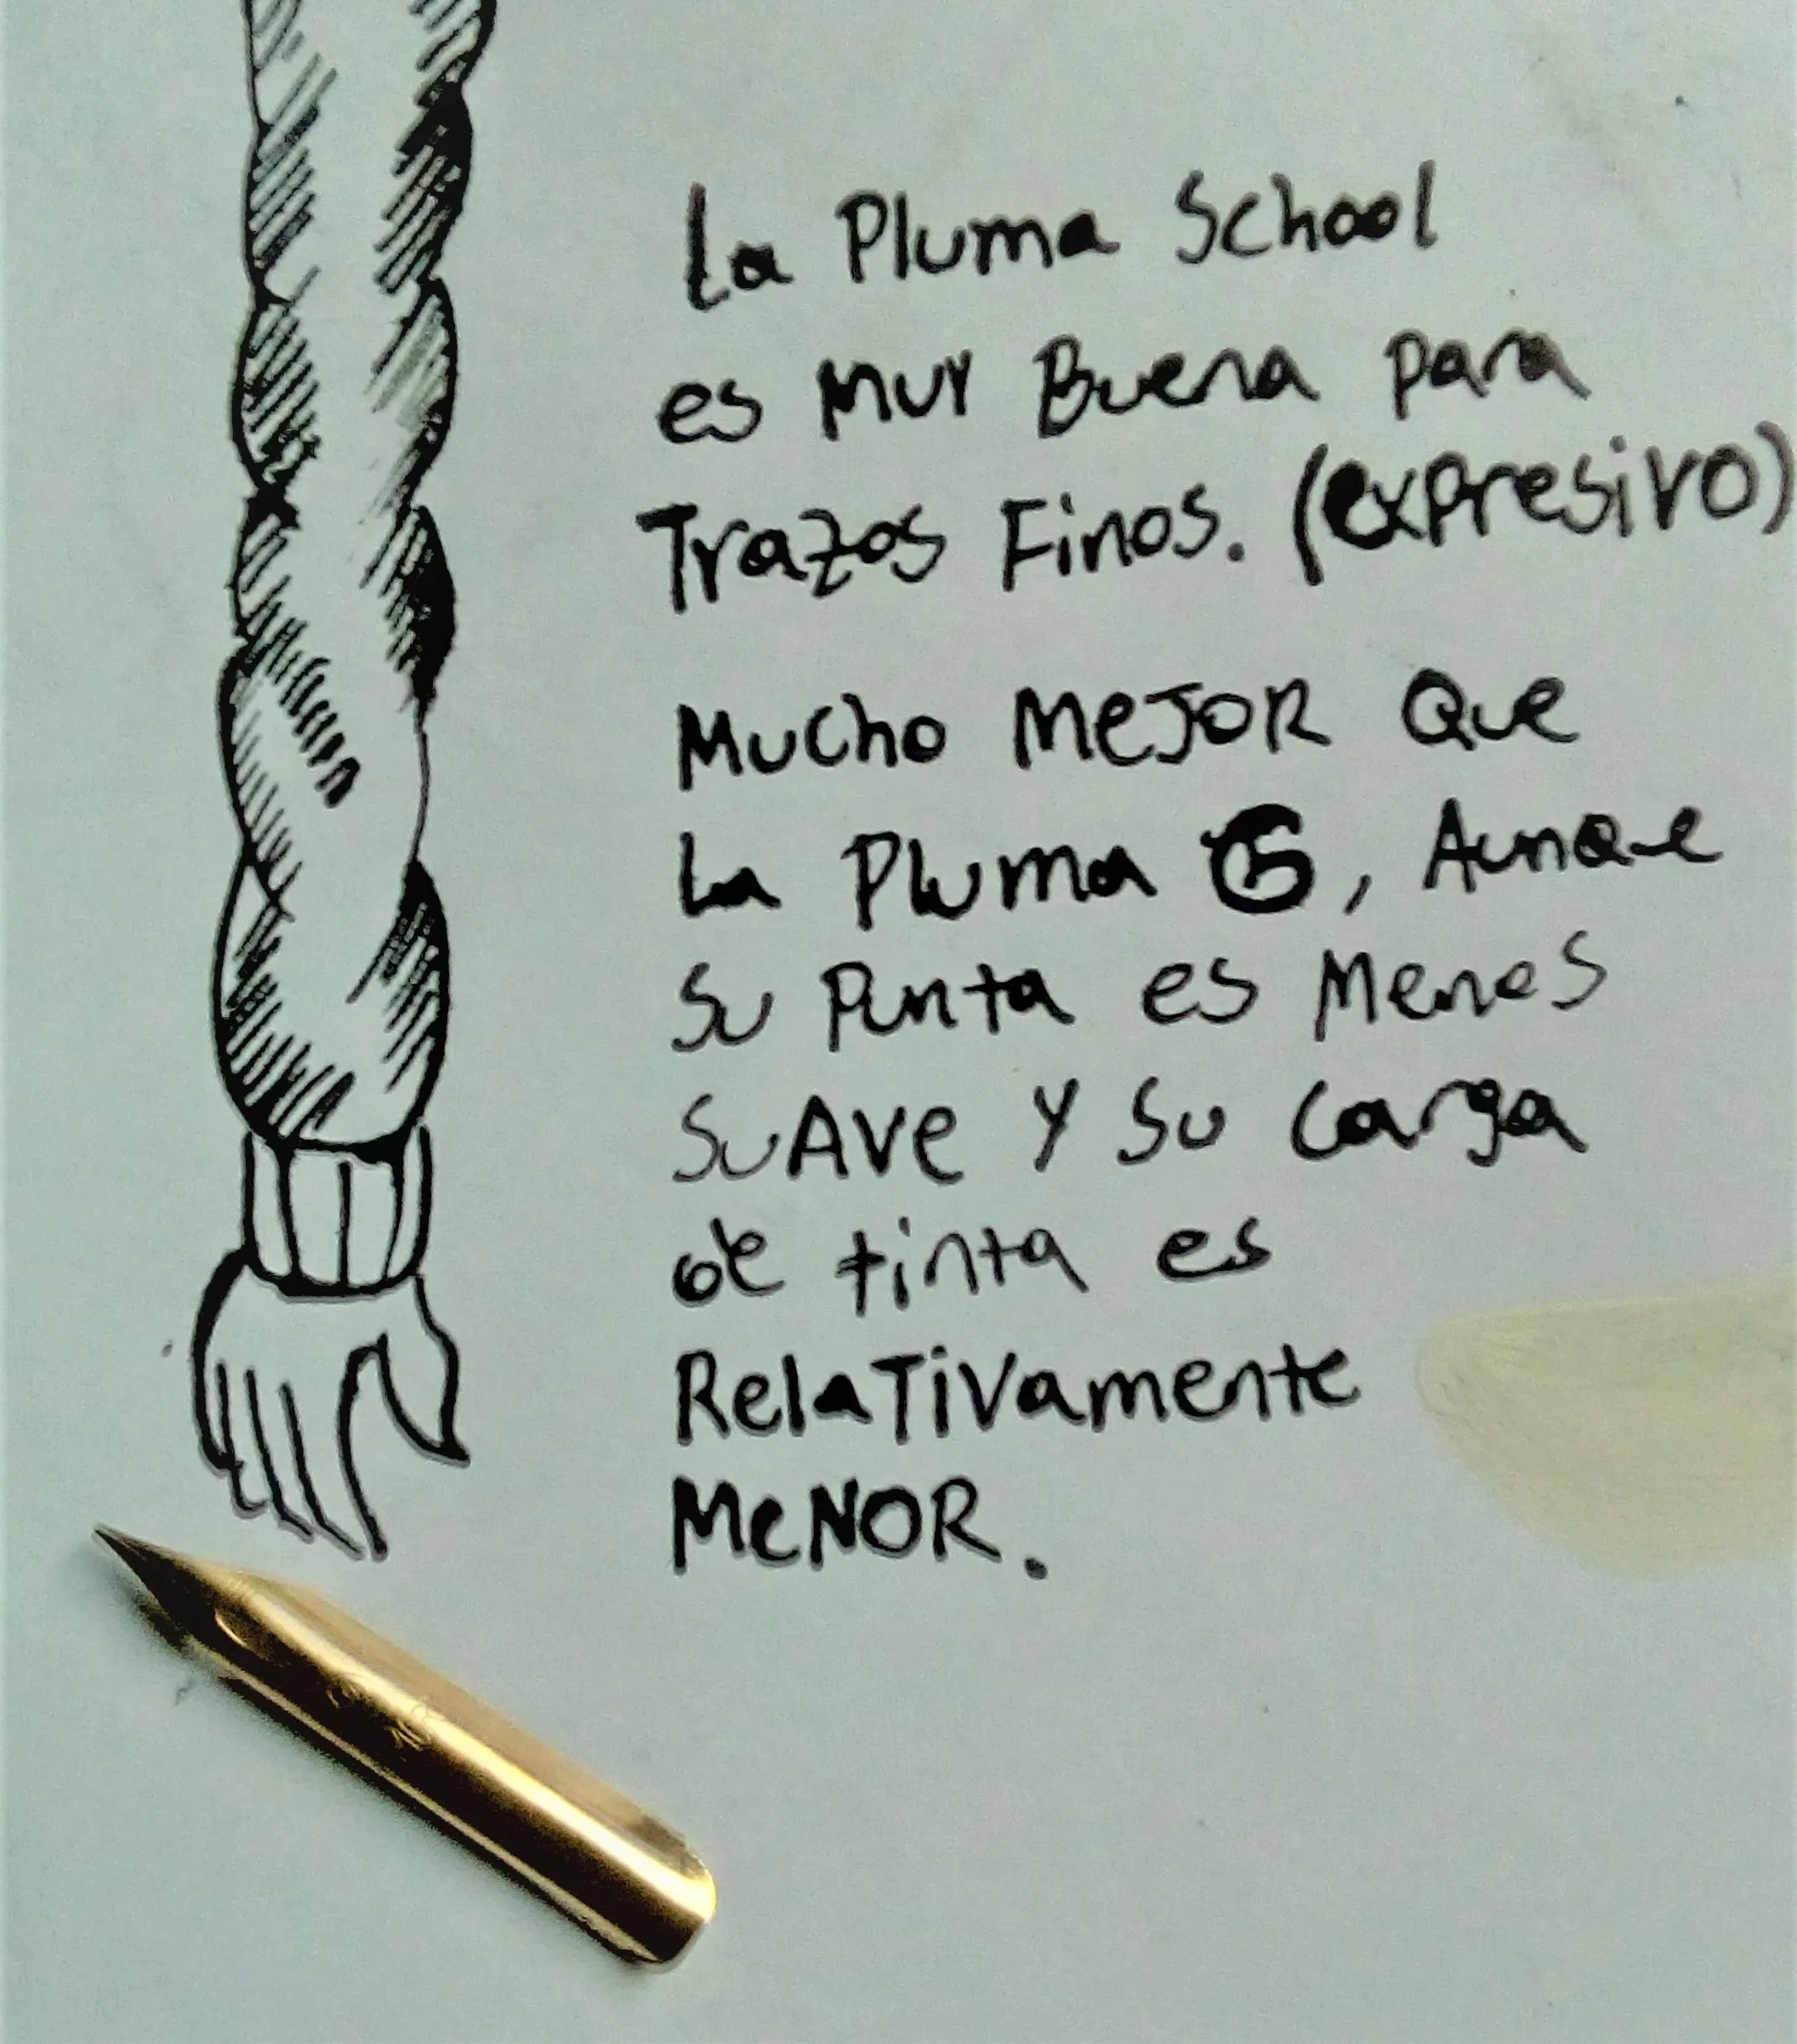 La Pluma School
es MUY Buena para
Trazos Finos. (expresivo)
Mucho MeJOR Que
La Pluma G, Aunque
su Punta es Menos
suAve Y su carga
de tinta es
RelaTivamente
MeNOR.